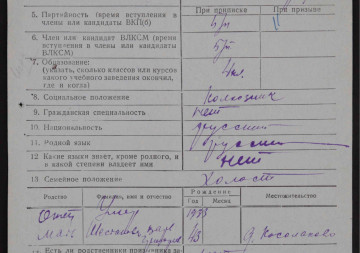 При приписке При призыве
5. Партийность (время вступления в члены или кандидаты ВКП(б) б/п
6. Член или кандидат ВЛКСМ (время вступления в члены или кандидаты ВЛКСМ)
*7. Образование: 4кл.
(указать, сколько классов или курсов какого учебного заведения окончил, где и когда)
*8. Социальное положение Колхозник
*9. Гражданская специальность нет
10. Национальность русский
11. Родной язык русский
12 Какие языки знает, кроме родного, и в какой степени владеет ими нет
13 Семейное положение Холост
Родство Фамилия, имя и отчество Рождение Местожительство
Год Месяц
Отец Умер
мать д. Косолапово
14 Есть ли родственники